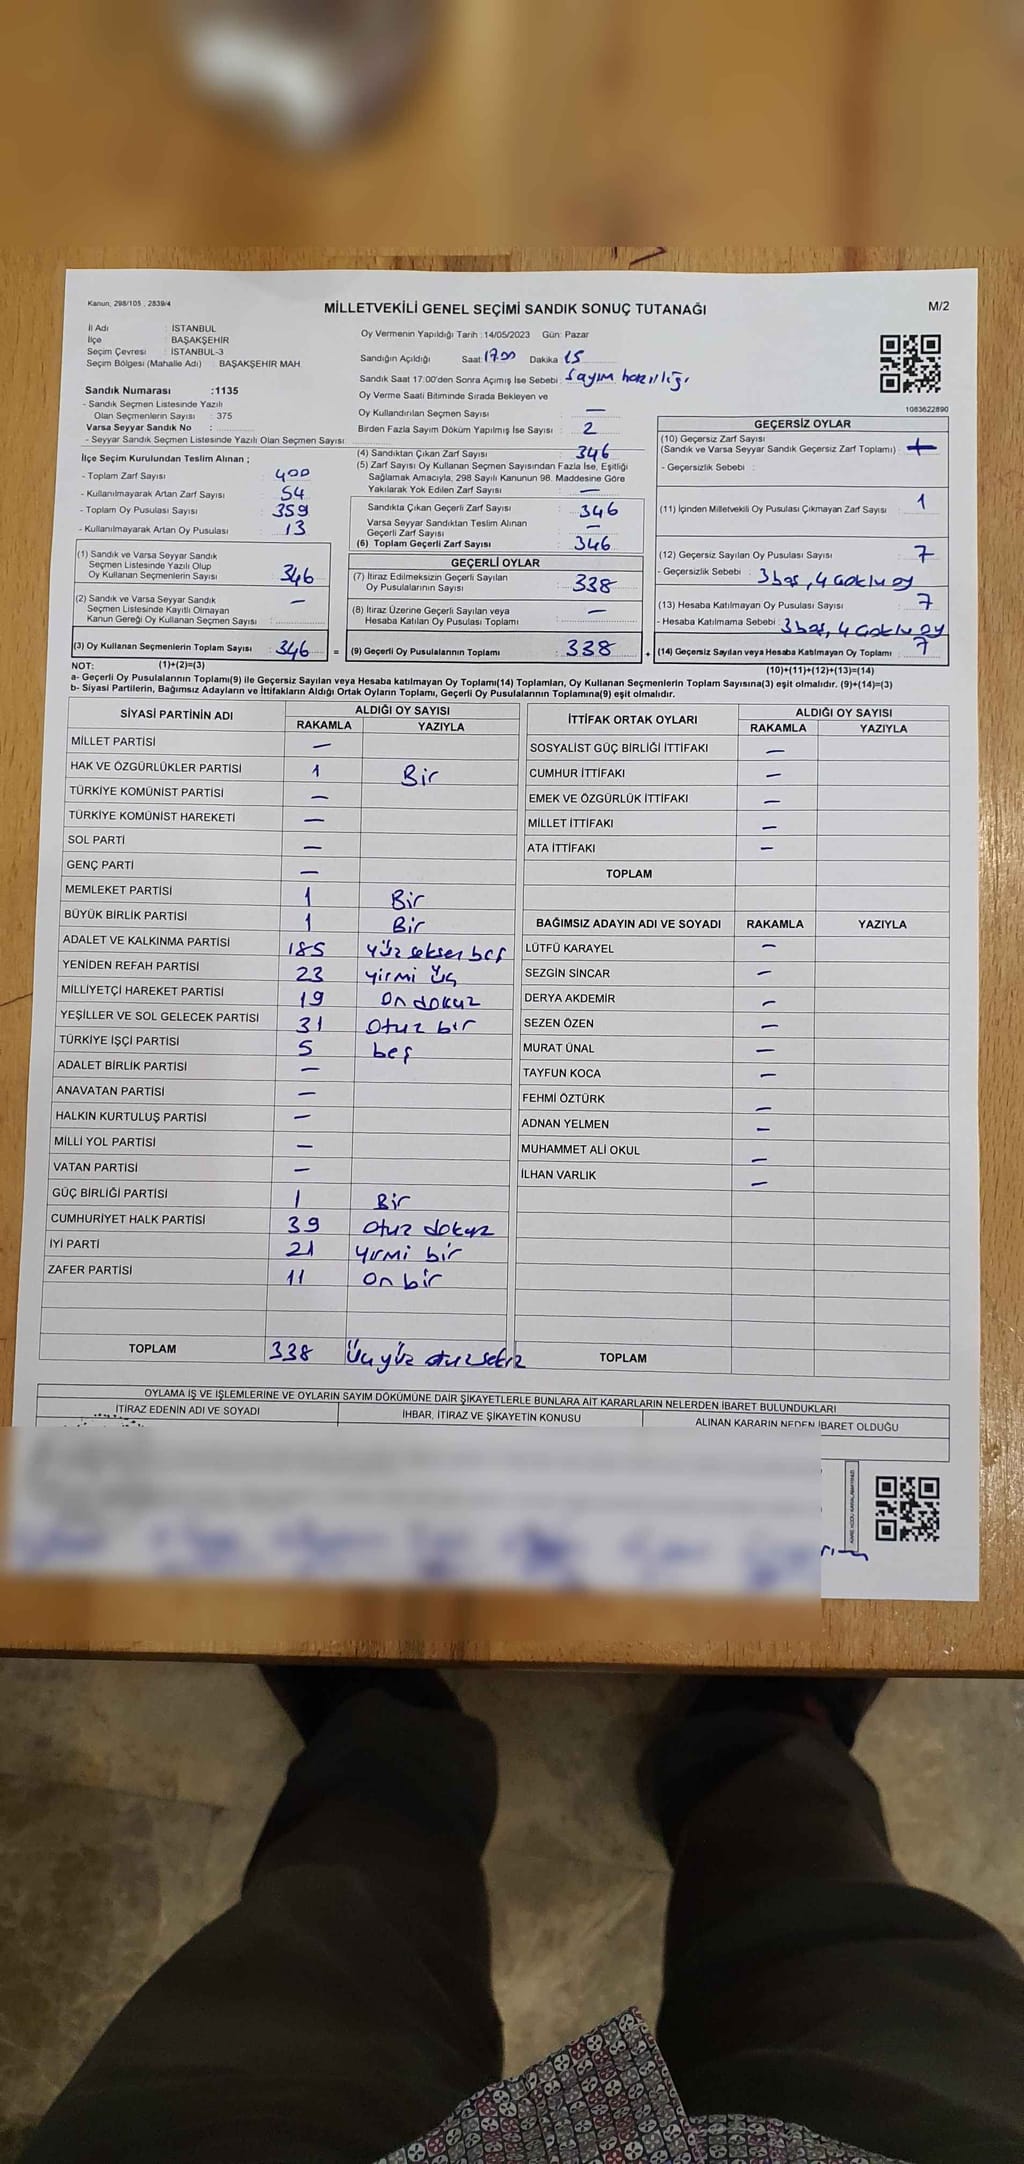 Kanun, 298/105 , 2839/4
MİLLETVEKİLİ GENEL SEÇİMİ SANDIK SONUÇ TUTANAĞI
M/2
İl Adı : İSTANBUL
İlçe : BAŞAKŞEHİR
Seçim Çevresi : İSTANBUL-3
Seçim Bölgesi (Mahalle Adı) : BAŞAKŞEHİR MAH
Sandık Numarası :1135
- Sandık Seçmen Listesinde Yazılı
Olan Seçmenlerin Sayısı : 375
Varsa Seyyar Sandık No :
- Seyyar Sandık Seçmen Listesinde Yazılı Olan Seçmen Sayısı:
İlçe Seçim Kurulundan Teslim Alınan ;
- Toplam Zarf Sayısı : 400
- Kullanılmayarak Artan Zarf Sayısı : 54
- Toplam Oy Pusulası Sayısı : 359
- Kullanılmayarak Artan Oy Pusulası : 13
(1) Sandık ve Varsa Seyyar Sandık
Seçmen Listesinde Yazılı Olup
Oy Kullanan Seçmenlerin Sayısı : 346
(2) Sandık ve Varsa Seyyar Sandık
Seçmen Listesinde Kayıtlı Olmayan
Kanun Gereği Oy Kullanan Seçmen Sayısı : —
(3) Oy Kullanan Seçmenlerin Toplam Sayısı : 346 =
Oy Vermenin Yapıldığı Tarih :14/05/2023 Gün: Pazar
Sandığın Açıldığı Saat: 17.00 Dakika 15
Sandık Saat 17:00'den Sonra Açımış İse Sebebi: Sayım hazırlığı
Oy Verme Saati Bitiminde Sırada Bekleyen ve
Oy Kullandırılan Seçmen Sayısı : —
Birden Fazla Sayım Döküm Yapılmış İse Sayısı : 2
(4) Sandıktan Çıkan Zarf Sayısı : 346
(5) Zarf Sayısı Oy Kullanan Seçmen Sayısından Fazla İse, Eşitliği
Sağlamak Amacıyla, 298 Sayılı Kanunun 98. Maddesine Göre
Yakılarak Yok Edilen Zarf Sayısı : —
Sandıkta Çıkan Geçerli Zarf Sayısı : 346
Varsa Seyyar Sandıktan Teslim Alınan
Geçerli Zarf Sayısı : —
(6) Toplam Geçerli Zarf Sayısı : 346
GEÇERLİ OYLAR
(7) İtiraz Edilmeksizin Geçerli Sayılan
Oy Pusulalarının Sayısı : 338
(8) İtiraz Üzerine Geçerli Sayılan veya
Hesaba Katılan Oy Pusulası Toplamı : —
(9) Geçerli Oy Pusulalarının Toplamı : 338 +
1083622890
GEÇERSİZ OYLAR
(10) Geçersiz Zarf Sayısı
(Sandık ve Varsa Seyyar Sandık Geçersiz Zarf Toplamı) :
- Geçersizlik Sebebi :
(11) İçinden Milletvekili Oy Pusulası Çıkmayan Zarf Sayısı : 1
(12) Geçersiz Sayılan Oy Pusulası Sayısı : 7
- Geçersizlik Sebebi : 3 boş, 4 çoklu oy
(13) Hesaba Katılmayan Oy Pusulası Sayısı : 7
- Hesaba Katılmama Sebebi : 3 boş, 4 çoklu oy
(14) Geçersiz Sayılan veya Hesaba Katılmayan Oy Toplamı : 7
NOT: (1)+(2)=(3) (10)+(11)+(12)+(13)=(14)
a- Geçerli Oy Pusulalarının Toplamı(9) ile Geçersiz Sayılan veya Hesaba katılmayan Oy Toplamı(14) Toplamları, Oy Kullanan Seçmenlerin Toplam Sayısına(3) eşit olmalıdır. (9)+(14)=(3)
b- Siyasi Partilerin, Bağımsız Adayların ve İttifakların Aldığı Ortak Oyların Toplamı, Geçerli Oy Pusulalarının Toplamına(9) eşit olmalıdır.
SİYASİ PARTİNİN ADI ALDIĞI OY SAYISI
RAKAMLA YAZIYLA
MİLLET PARTİSİ —
HAK VE ÖZGÜRLÜKLER PARTİSİ 1 Bir
TÜRKİYE KOMÜNİST PARTİSİ —
TÜRKİYE KOMÜNİST HAREKETİ —
SOL PARTİ —
GENÇ PARTİ —
MEMLEKET PARTİSİ 1 Bir
BÜYÜK BİRLİK PARTİSİ 1 Bir
ADALET VE KALKINMA PARTİSİ 185 yüz seksen beş
YENİDEN REFAH PARTİSİ 23 yirmi üç
MİLLİYETÇİ HAREKET PARTİSİ 19 On dokuz
YEŞİLLER VE SOL GELECEK PARTİSİ 31 Otuz bir
TÜRKİYE İŞÇİ PARTİSİ 5 beş
ADALET BİRLİK PARTİSİ —
ANAVATAN PARTİSİ —
HALKIN KURTULUŞ PARTİSİ —
MİLLİ YOL PARTİSİ —
VATAN PARTİSİ —
GÜÇ BİRLİĞİ PARTİSİ 1 Bir
CUMHURİYET HALK PARTİSİ 39 Otuz dokuz
İYİ PARTİ 21 yirmi bir
ZAFER PARTİSİ 11 On bir
TOPLAM 338 Üçyüz otuzsekiz
İTTİFAK ORTAK OYLARI ALDIĞI OY SAYISI
RAKAMLA YAZIYLA
SOSYALİST GÜÇ BİRLİĞİ İTTİFAKI —
CUMHUR İTTİFAKI —
EMEK VE ÖZGÜRLÜK İTTİFAKI —
MİLLET İTTİFAKI —
ATA İTTİFAKI —
TOPLAM
BAĞIMSIZ ADAYIN ADI VE SOYADI RAKAMLA YAZIYLA
LÜTFÜ KARAYEL —
SEZGİN SİNCAR —
DERYA AKDEMİR —
SEZEN ÖZEN —
MURAT ÜNAL —
TAYFUN KOCA —
FEHMİ ÖZTÜRK —
ADNAN YELMEN —
MUHAMMET ALİ OKUL —
İLHAN VARLIK —
TOPLAM
OYLAMA İŞ VE İŞLEMLERİNE VE OYLARIN SAYIM DÖKÜMÜNE DAİR ŞİKAYETLERLE BUNLARA AİT KARARLARIN NELERDEN İBARET BULUNDUKLARI
İTİRAZ EDENİN ADI VE SOYADI İHBAR, İTİRAZ VE ŞİKAYETİN KONUSU ALINAN KARARIN NEDEN İBARET OLDUĞU